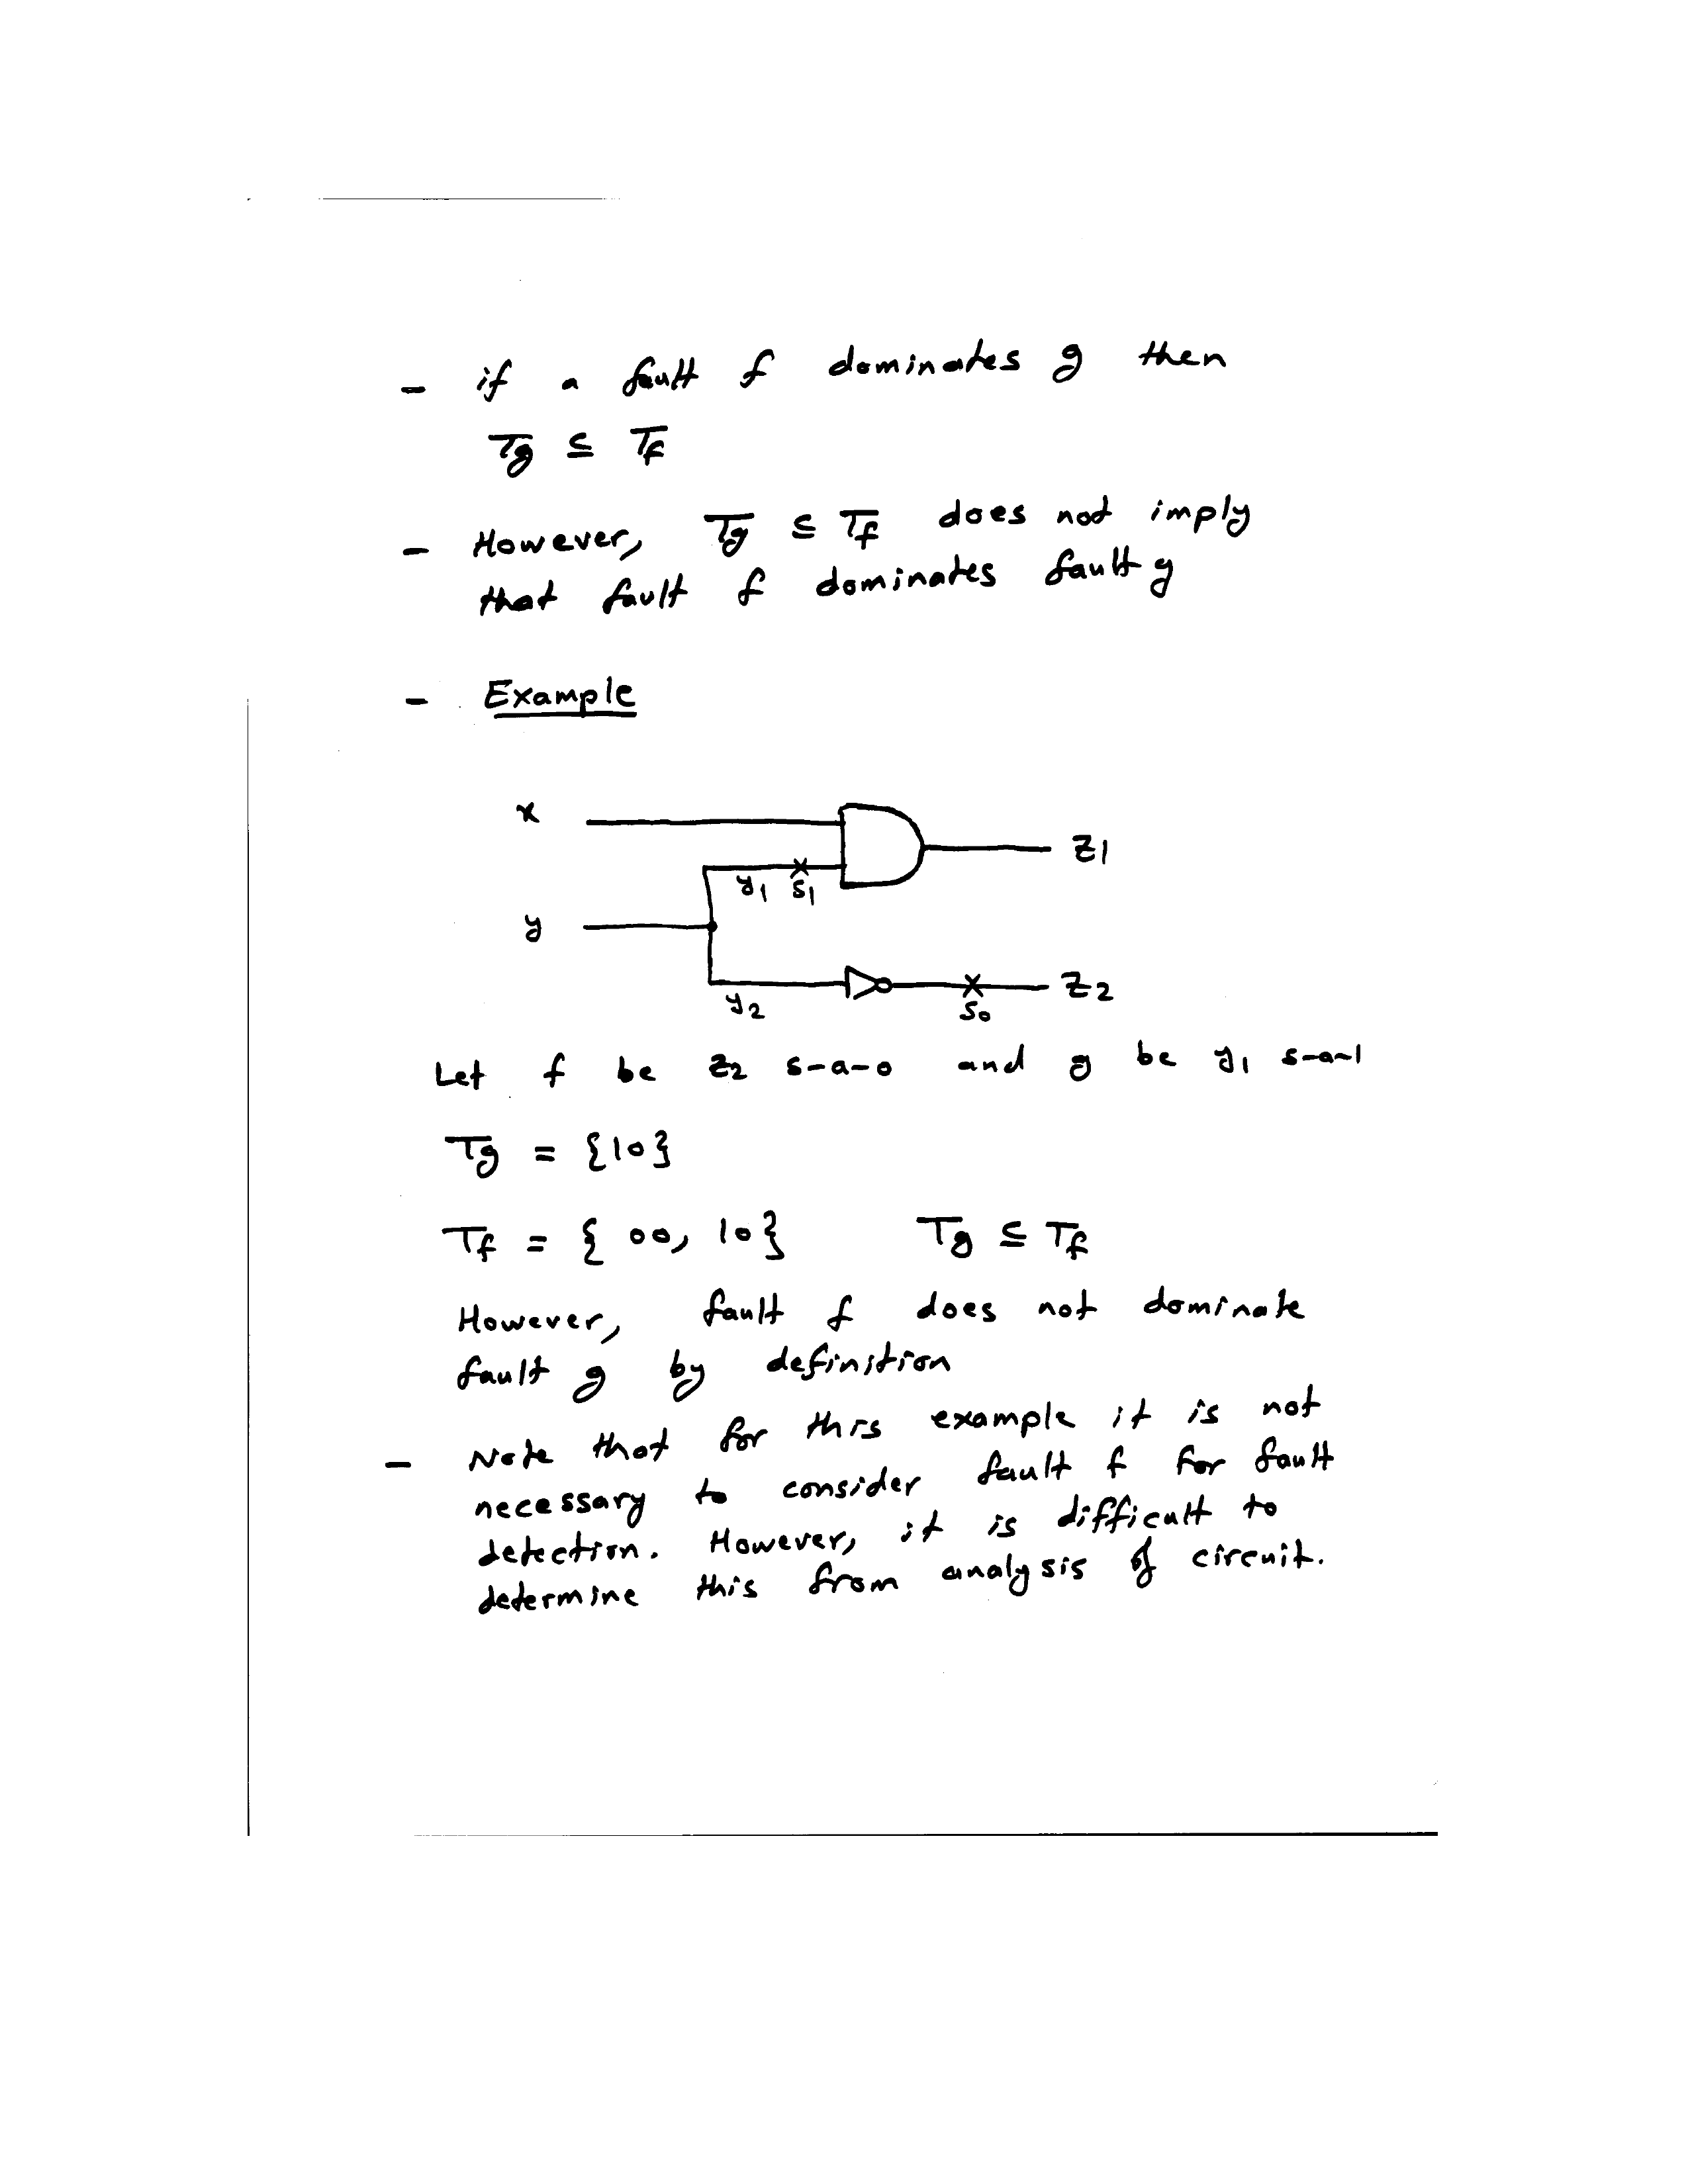 - if a fault f dominates g then
Tg ⊆ Tf
- However, Tg ⊆ Tf does not imply
that fault f dominates fault g
- Example
x
z1
y1 s1
y
z2
y2
s0
Let f be z2 s-a-0 and g be y1 s-a-1
Tg = {10}
Tf = { 00, 10} Tg ⊆ Tf
However, fault f does not dominate
fault g by definition
- Note that for this example it is not
necessary to consider fault f for fault
detection. However, it is difficult to
determine this from analysis of circuit.